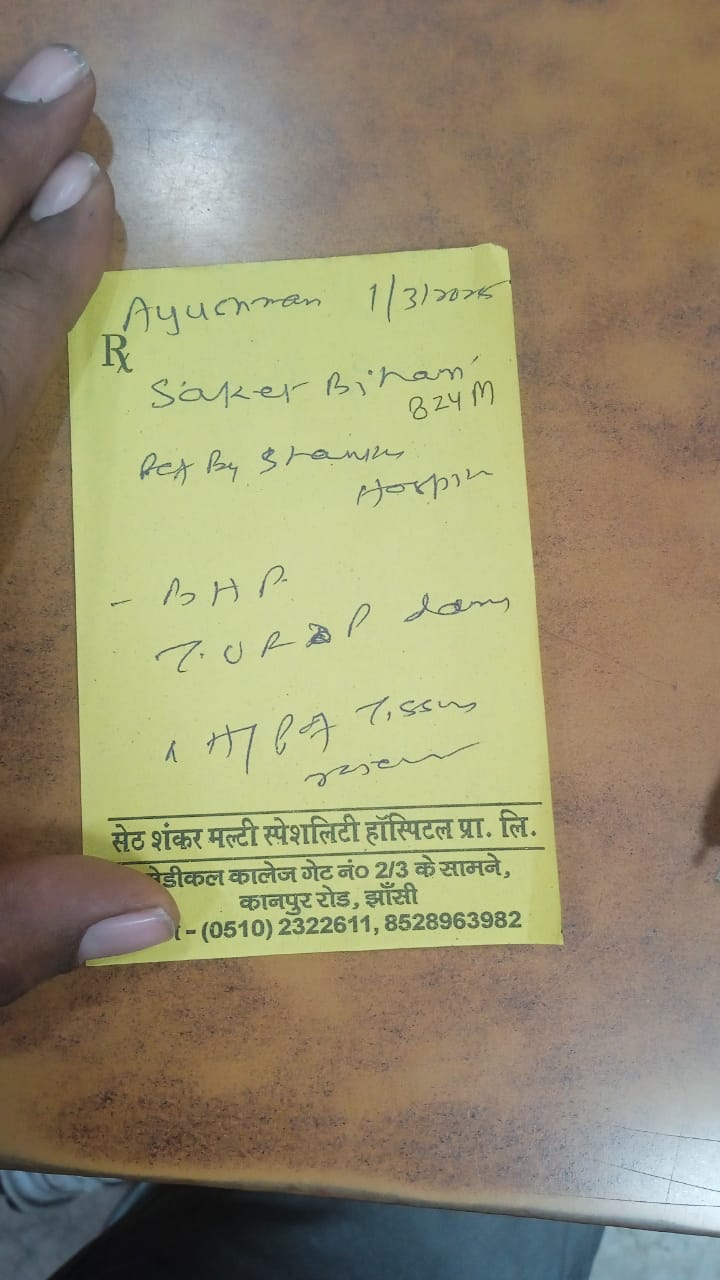 Ayushman 1/3/2025
Rx
Saket Bihari
82Y M
Ref By Shanker
Hospital
- BHP
T.U.R.P done
HP of Tissue
सेठ शंकर मल्टी स्पेशलिटी हॉस्पिटल प्रा. लि.
मेडीकल कालेज गेट नं० 2/3 के सामने,
कानपुर रोड, झाँसी
- (0510) 2322611, 8528963982